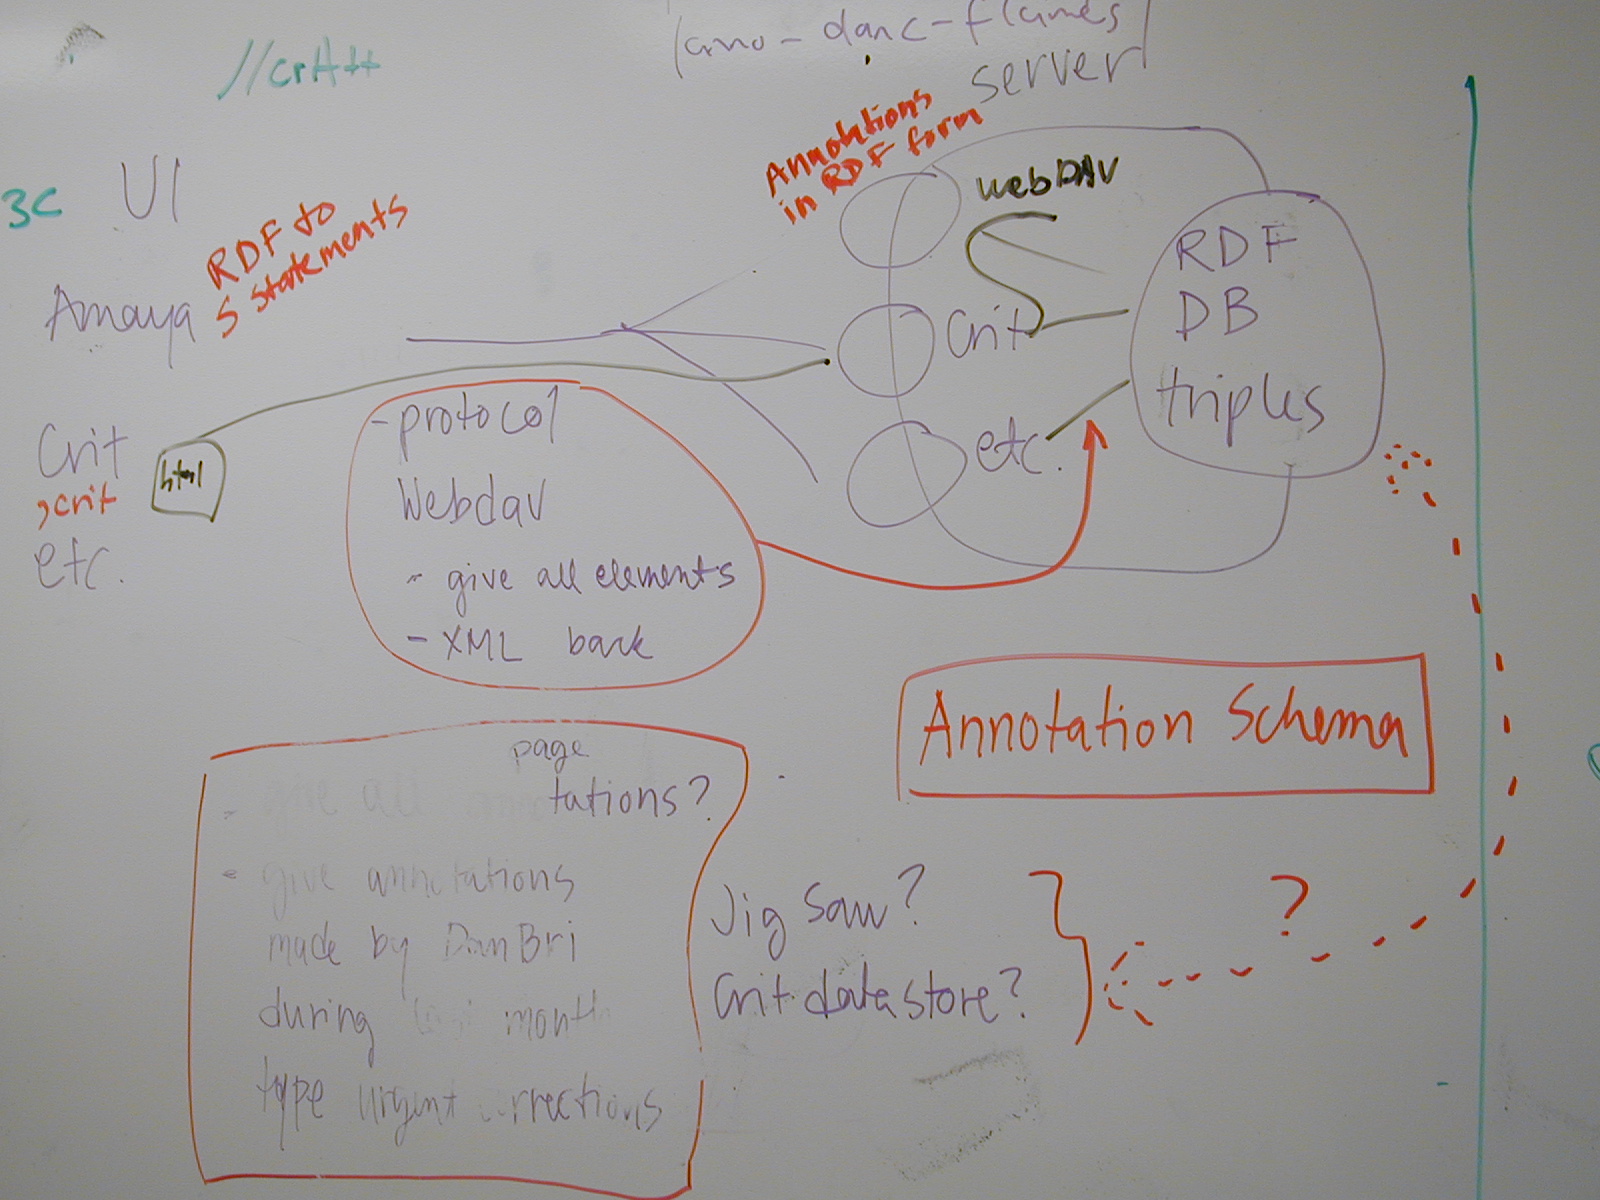 //crit++
-danc-flames
server
3C
UI
Annotations
in RDF form
RDF to
5 statements
Amaya
webDAV
RDF
DB
triples
Crit
etc.
Crit
;crit
etc.
html
- protocol
Webdav
- give all elements
- XML back
Annotation Schema
page
- give all tations?
- give annotations
made by DanBri
during last month
type urgent corrections
Jig saw?
Crit data store?
?